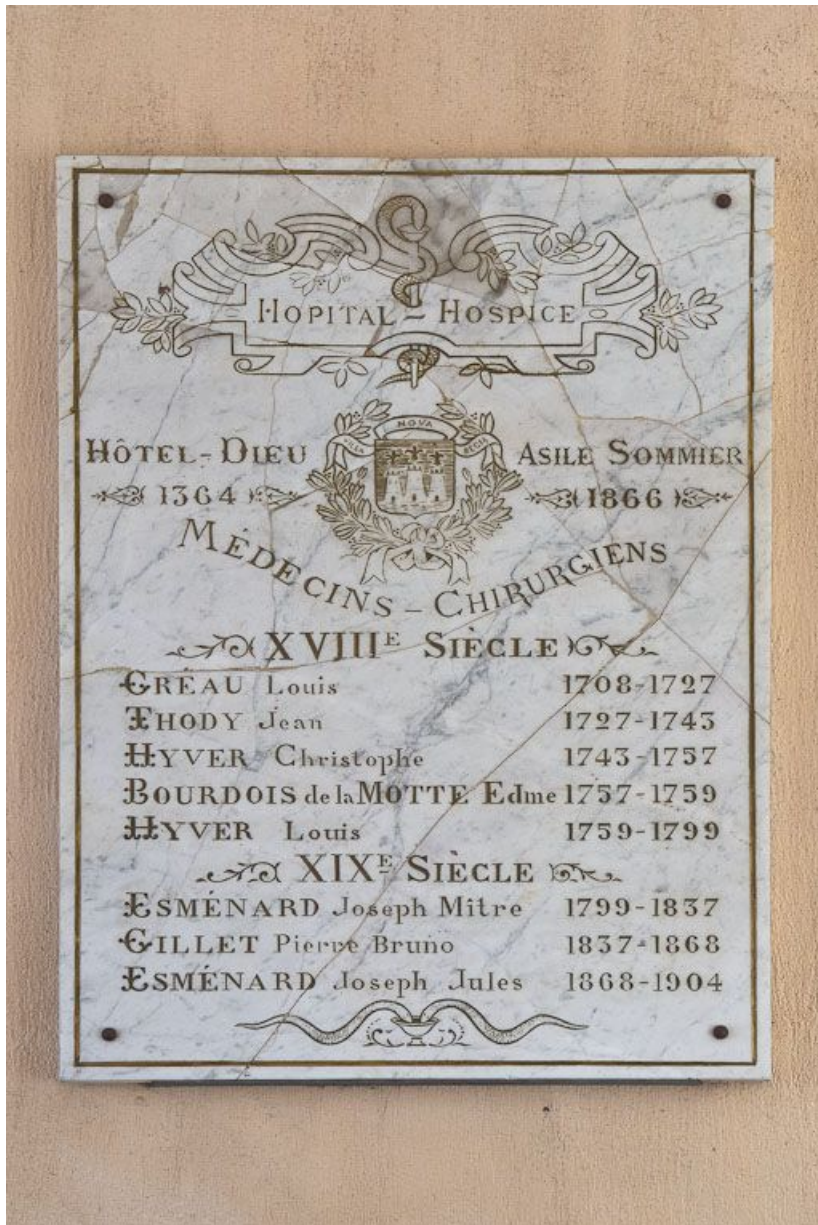 HOPITAL - HOSPICE
VILLA NOVA REGIA
HÔTEL-DIEU
1364
ASILE SOMMIER
1866
MÉDECINS - CHIRURGIENS
XVIIIE SIÈCLE
GRÉAU Louis 1708-1727
THODY Jean 1727-1743
HYVER Christophe 1743-1757
BOURDOIS de la MOTTE Edme 1757-1759
HYVER Louis 1759-1799
XIXE SIÈCLE
ESMÉNARD Joseph Mître 1799-1837
GILLET Pierre Bruno 1837-1868
ESMÉNARD Joseph Jules 1868-1904